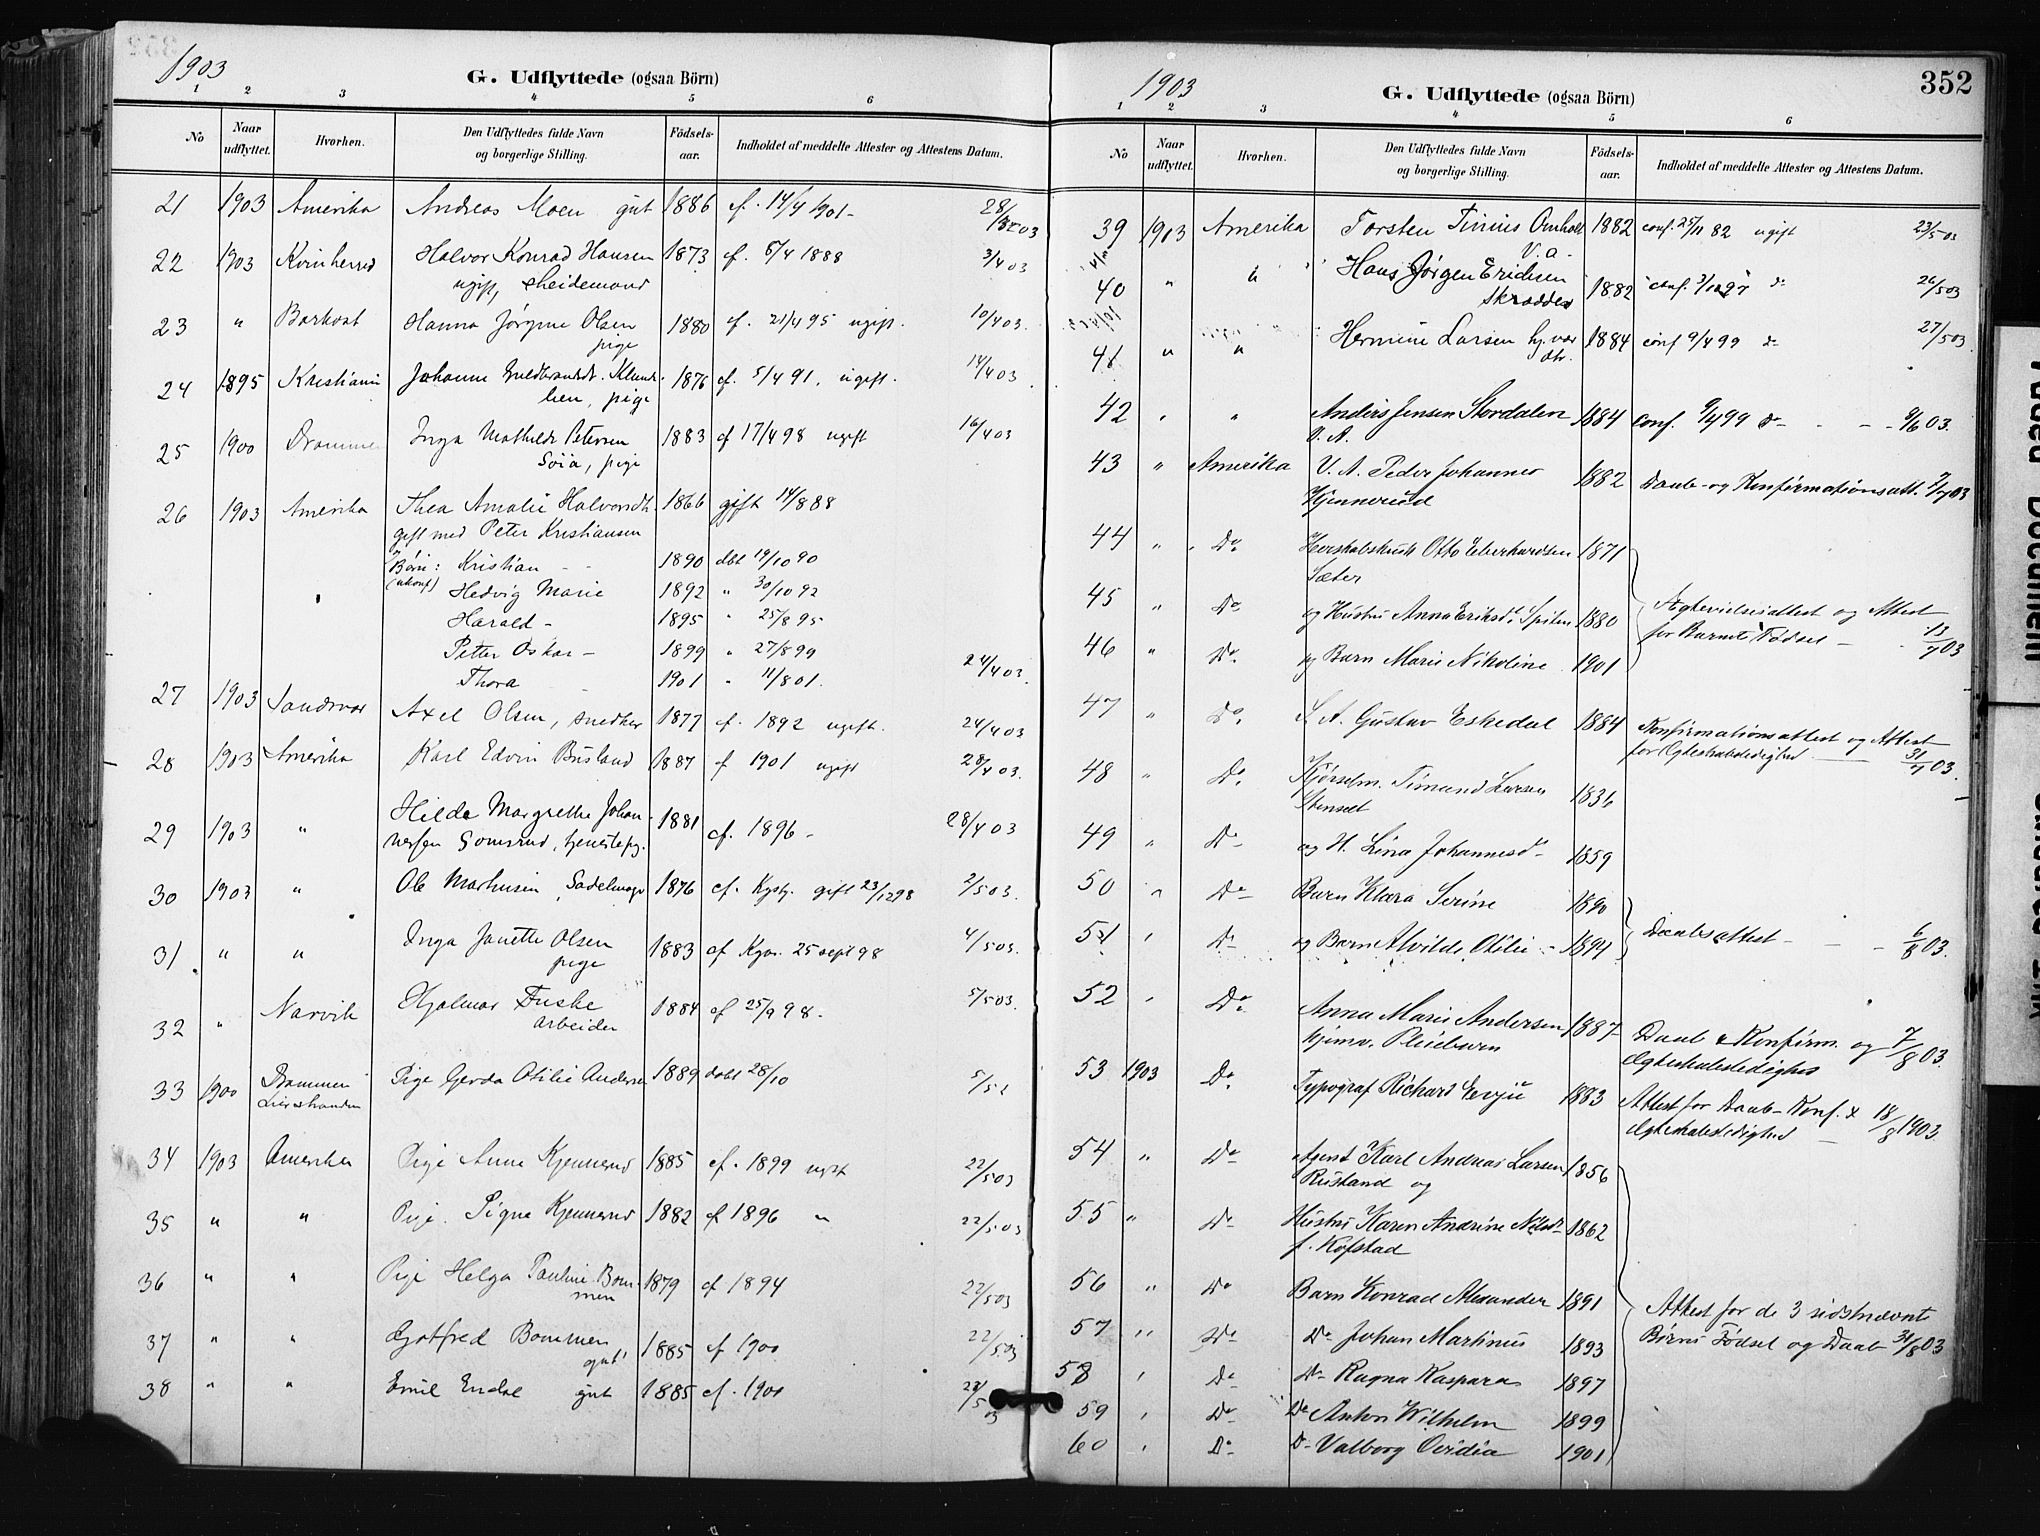 1903
G. Udflyttede (ogsaa Börn)
1 2 3 4 5 6
No
Naar udflyttet.
Hvorhen.
Den Udflyttedes fulde Navn og borgerlige Stilling.
Födsels-aar.
Indholdet af meddelte Attester og Attestens Datum.
21 1903 Amerika Andreas Moen gut 1886 cf. 14/4 1901-
22 1903 Kvinherred Halvor Konrad Hansen 1873 cf. 8/4 1888 3/4 03
ugift,
23 " Hanna Jørgine Olsen 1880 cf. 21/4 95 ugift. 10/4 03.
pige
24 1895 Kristiania Johanne 1876 cf. 5/4 91, ugift. 14/4 03
pige
25 1900 Drammen Inga Mathilde Petersen 1883 cf 17/4 98 ugift 16/4 03
pige
26 1903 Amerika Thea Amalie Halvorsdt. 1866 gift 14/8 88
gift med Peter Kristiansen
Børn: Kristian - - 1890 dbt 19/10 90
(ukonf) Hedvig Marie 1892 " 30/10 92
Harald - 1895 " 25/8 95
Petter Oskar - 1899 " 27/8 99
Thora - 1901 " 11/8 01. 24/4 03.
27 1903 Sandsvær Axel Olsen, snedker 1877 cf. 1892 ugift. 24/4 03
28 1903 Amerika Karl Edvin Busland 1887 cf 1901 ugift 28/4 03.
29 1903 " Hilda Margrethe Johan- 1881 cf. 1896 - 28/4 03
nessen Gomsrud, tjenestepg.
30 1903 " Ole Markusen, Sadelmager 1876 cf. gift 23/12 98 2/5 03.
31 " " Inga Janette Olsen 1883 cf 25 sept 98 4/5 03.
pige
32 " Narvik Hjalmar Fuske 1884 cf 25/9 98. 5/5 03.
arbeider
33 1900 Drammen Pige Gerda Otilie Andersen 1889 døbt 28/10
Lierstranden
34 1903 Amerika Pige Anna Kjennerud 1885 cf. 1899 ugift 22/5 03
35 " " Pige. Signe Kjennerud 1882 cf 1896 " 22/5 03
36 " " Pige Helga Pauline Bom- 1879 cf 1894 22/5 03
men
37 " " Gotfred Bommen 1885 cf 1900 22/5 03
gut
38 " " Emil Endal gut 1885 cf. 1900
1903
352
G. Udflyttede (ogsaa Börn)
1 2 3 4 5 6
No
Naar udflyttet.
Hvorhen.
Den Udflyttedes fulde Navn og borgerlige Stilling.
Födsels-aar.
Indholdet af meddelte Attester og Attestens Datum.
39 1903 Amerika Torsten Tinius Omholt 1882 conf. 25/11 82 ugift 23/5 03
V. a.
40 " " Hans Jørgen Eriksen 1882 26/5 03
Skrædder
41 " " Hermine Larsen 1884 conf 9/4 99 do 27/5 03.
42 " " Anders Jensen Stordalen 1884 conf. 9/4 99 Do - - - 9/6 03.
V. A.
43 " Amerika V. A. Peder Johannes 1882 Daab- og Konfirmationsatt. 7/7 03
Kjennerud
44 " Do Otto Eberhardsen 1871
Sæter
45 " Do og Hustru Anna Eriksd. 1880 Ægtevielsesattest og Attest
for Barnets Fødsel - 13/7 03
46 " Do. og Barn Marie Nikoline 1901
47 " Do. S. A. Gustav Eskedal 1884 Konfirmationsattest og Attest
for Ægteskabsledighed 31/7 03.
48 " Do. Larsen 1836
Stenset
49 " Do og H. Lina Johannesd. 1859
50 " Do Barn Klara Serine 1890 Daabsattest - - - 6/8 03.
51 " Do og Barn Alvilde Otilie - 1894
52 " Do. Anna Marie Andersen 1887 Daab & Konfirm. og 7/8 03.
Pleiebarn Ægteskabsledighed
53 1903 Do. Typograf Richard Evju 1883 Attest for Daab- Konf. & 18/8 1903.
Ægteskabsledighed
54 " Do Agent Karl Andreas Larsen 1856
Rustand og
55 " Do Hustru Karen Andrine Nilsd. 1862
f. Kofstad
56 " Do Barn Konrad Alexander 1891 Attest for de 3 sidstnævnte
57 " Do Do Johan Martinus 1893 Børns Fødsel og Daab 31/8 03
58 " Do Do Ragna Kaspara 1897
59 " Do Do Anton Wilhelm 1899
60 " Do Do Valborg Ovidia 1901